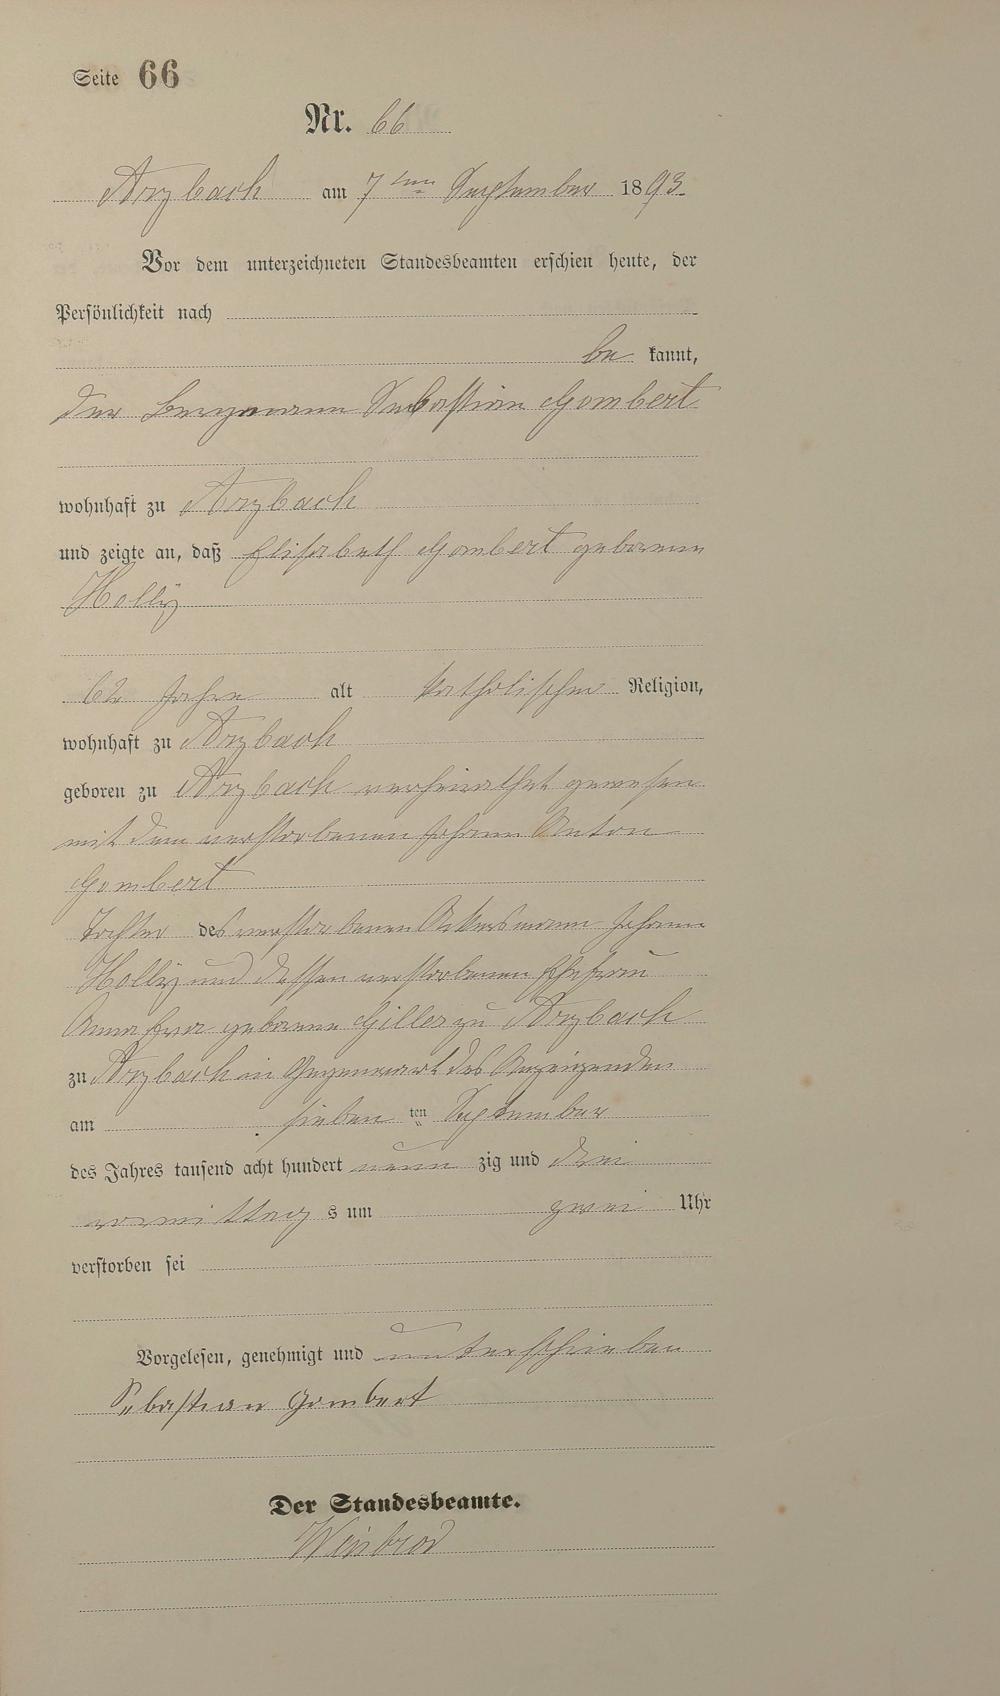 Seite 66
Nr. 66
Arzbach am 7ten September 1893.
Vor dem unterzeichneten Standesbeamten erschien heute, der
Persönlichkeit nach
be kannt,
der Bergmann Sebastian Gombert
wohnhaft zu Arzbach
und zeigte an, daß Elisabeth Gombert geborene
Holly
62 Jahre alt katholischer Religion,
wohnhaft zu Arzbach
geboren zu Arzbach verheirathet gewesen
mit dem verstorbenen Johann Anton
Gombert
Tochter des verstorbenen Ackersmann Johann
Holly und dessen verstorbenen Ehefrau
Anna Eva geborene Giller zu Arzbach
zu Arzbach in Gegenwart des Anzeigenden
am sieben ten September
des Jahres tausend acht hundert neun zig und drei
vormittag s um zwei Uhr
verstorben sei
Vorgelesen, genehmigt und unterschrieben
Sebastian Gombert
Der Standesbeamte.
Weinbrod